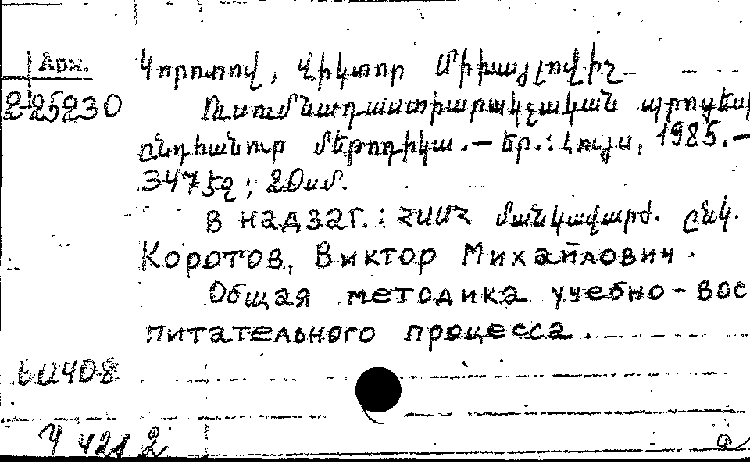 Арм.
Կորոտով, Վիկտոր Միխայլովիչ
2-25230
Ուսումնադաստիարակչական պրոցեսի
ընդհանուր մեթոդիկա. — Եր.: Լույս, 1985. —
347 էջ; 20սմ.
В надзаг.: ՀՍՍՀ մանկավարժ. ընկ.
Коротов, Виктор Михайлович.
Общая методика учебно-вос
питательного процесса.